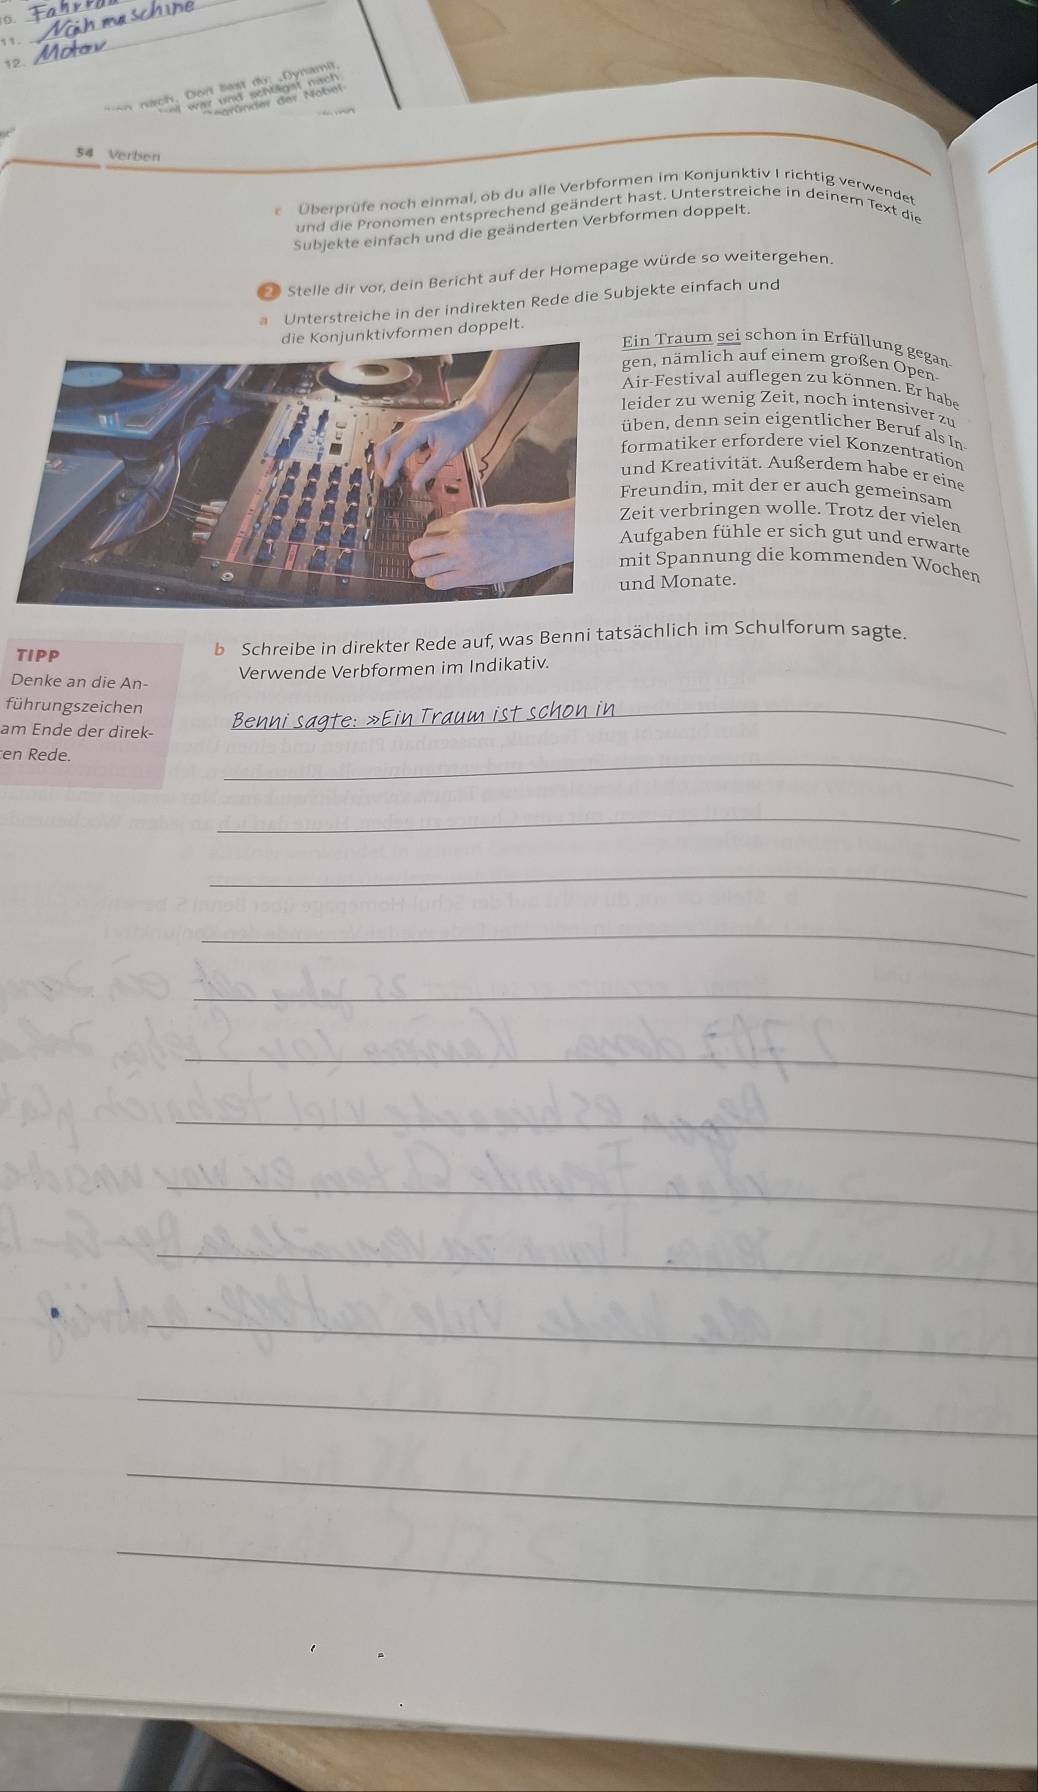 10. Fahrrad
11. Nähmaschine
12. Motor
nach. Dort liest du: „Dynamit,
war und schlägst nach:
der Nobel-
54 Verben
c Überprüfe noch einmal, ob du alle Verbformen im Konjunktiv I richtig verwendet
und die Pronomen entsprechend geändert hast. Unterstreiche in deinem Text die
Subjekte einfach und die geänderten Verbformen doppelt.
2 Stelle dir vor, dein Bericht auf der Homepage würde so weitergehen.
a Unterstreiche in der indirekten Rede die Subjekte einfach und
die Konjunktivformen doppelt.
Ein Traum sei schon in Erfüllung gegan-
gen, nämlich auf einem großen Open-
Air-Festival auflegen zu können. Er habe
leider zu wenig Zeit, noch intensiver zu
üben, denn sein eigentlicher Beruf als In-
formatiker erfordere viel Konzentration
und Kreativität. Außerdem habe er eine
Freundin, mit der er auch gemeinsam
Zeit verbringen wolle. Trotz der vielen
Aufgaben fühle er sich gut und erwarte
mit Spannung die kommenden Wochen
und Monate.
b Schreibe in direkter Rede auf, was Benni tatsächlich im Schulforum sagte.
Verwende Verbformen im Indikativ.
TIPP
Denke an die An-
führungszeichen
am Ende der direk-
ten Rede.
Benni sagte: »Ein Traum ist schon in